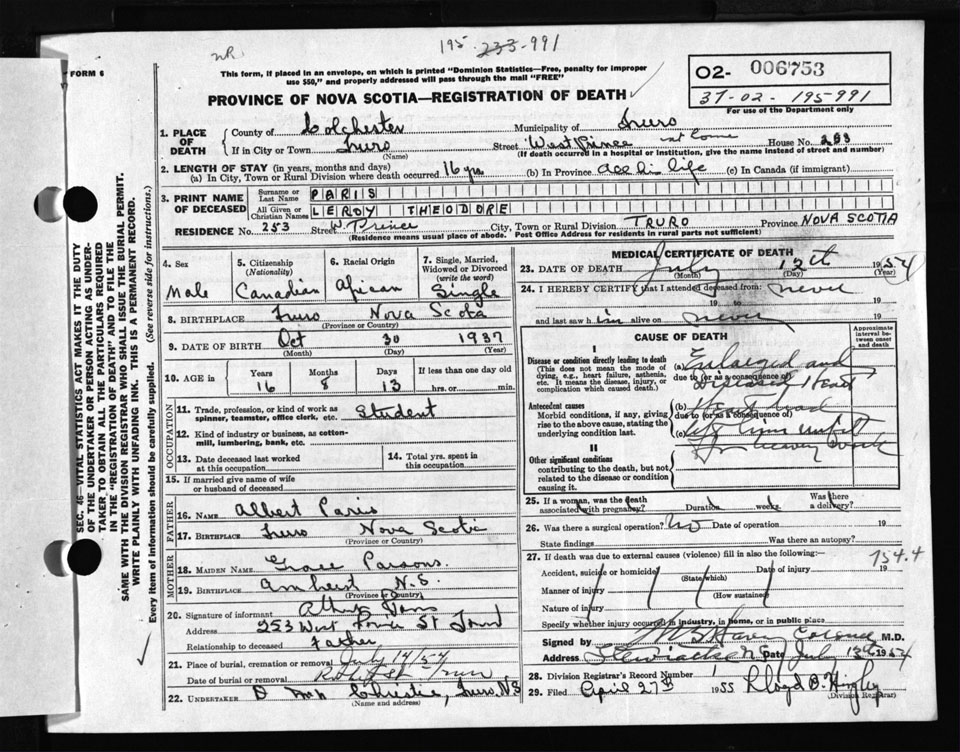 NR
195 233-991
FORM 6
This form, if placed in an envelope, on which is printed "Dominion Statistics—Free, penalty for improper
use $50," and properly addressed will pass through the mail "FREE"
02- 006753
37-02-195-991
For use of the Department only
PROVINCE OF NOVA SCOTIA—REGISTRATION OF DEATH
1. PLACE OF DEATH County of Colchester Municipality of Truro
If in City or Town Truro (Name) Street West Prince at home House No. 253
(If death occurred in a hospital or institution, give the name instead of street and number)
2. LENGTH OF STAY (in years, months and days)
(a) In City, Town or Rural Division where death occurred 16 yrs (b) In Province all his life (c) In Canada (if immigrant)
3. PRINT NAME OF DECEASED Surname or Last Name PARIS
All Given or Christian Names LEROY THEODORE
RESIDENCE No. 253 Street W. Prince City, Town or Rural Division TRURO Province NOVA SCOTIA
(Residence means usual place of abode. Post Office Address for residents in rural parts not sufficient)
4. Sex Male
5. Citizenship (Nationality) Canadian
6. Racial Origin African
7. Single, Married, Widowed or Divorced (write the word) Single
8. BIRTHPLACE Truro Nova Scotia
(Province or Country)
9. DATE OF BIRTH Oct 30 1937
(Month) (Day) (Year)
10. AGE in Years Months Days If less than one day old
16 8 13 hrs. or min.
OCCUPATION
11. Trade, profession, or kind of work as spinner, teamster, office clerk, etc. Student
12. Kind of industry or business, as cotton-mill, lumbering, bank, etc.
13. Date deceased last worked at this occupation
14. Total yrs. spent in this occupation
15. If married give name of wife or husband of deceased
FATHER
16. NAME Albert Paris
17. BIRTHPLACE Truro Nova Scotia
(Province or Country)
MOTHER
18. MAIDEN NAME Grace Parsons.
19. BIRTHPLACE Amherst N.S.
(Province or Country)
20. Signature of informant Paris
Address 253 West Prince St
Relationship to deceased Father
21. Place of burial, cremation or removal July 14/54
Date of burial or removal Robie St. Truro
22. UNDERTAKER Christie, Truro, N.S
(Name and address)
MEDICAL CERTIFICATE OF DEATH
23. DATE OF DEATH July 12th 1954
(Month) (Day) (Year)
24. I HEREBY CERTIFY that I attended deceased from never 19
19 to 19
and last saw him alive on never 19
CAUSE OF DEATH
Approximate interval between onset and death
I
Disease or condition directly leading to death
(This does not mean the mode of dying, e.g., heart failure, asthenia, etc. It means the disease, injury, or complication which caused death.)
(a) Enlarged and
due to (or as a consequence of)
Diseased Heart
Antecedent causes
Morbid conditions, if any, giving rise to the above cause, stating the underlying condition last.
(b)
due to (or as a consequence of)
(c)
II
Other significant conditions
contributing to the death, but not related to the disease or condition causing it.
25. If a woman, was the death associated with pregnancy? Duration weeks. Was there a delivery?
26. Was there a surgical operation? No Date of operation 19
State findings Was there an autopsy?
27. If death was due to external causes (violence) fill in also the following:— 754.4
Accident, suicide or homicide (State which) Date of injury 19
Manner of injury (How sustained)
Nature of injury
Specify whether injury occurred in industry, in home, or in public place
Signed by Coroner M.D.
Address Stewiacke N.S. Date July 13th 1954
28. Division Registrar's Record Number 1
29. Filed April 27th 1955 Lloyd B. Higley
(Division Registrar)
SEC. 46—VITAL STATISTICS ACT MAKES IT THE DUTY
OF THE UNDERTAKER OR PERSON ACTING AS UNDERTAKER TO OBTAIN ALL THE PARTICULARS REQUIRED
IN THE "REGISTRATION OF DEATH" AND TO FILE THE
SAME WITH THE DIVISION REGISTRAR WHO SHALL ISSUE THE BURIAL PERMIT.
WRITE PLAINLY WITH UNFADING INK. THIS IS A PERMANENT RECORD.
Every item of information should be carefully supplied. (See reverse side for instructions.)